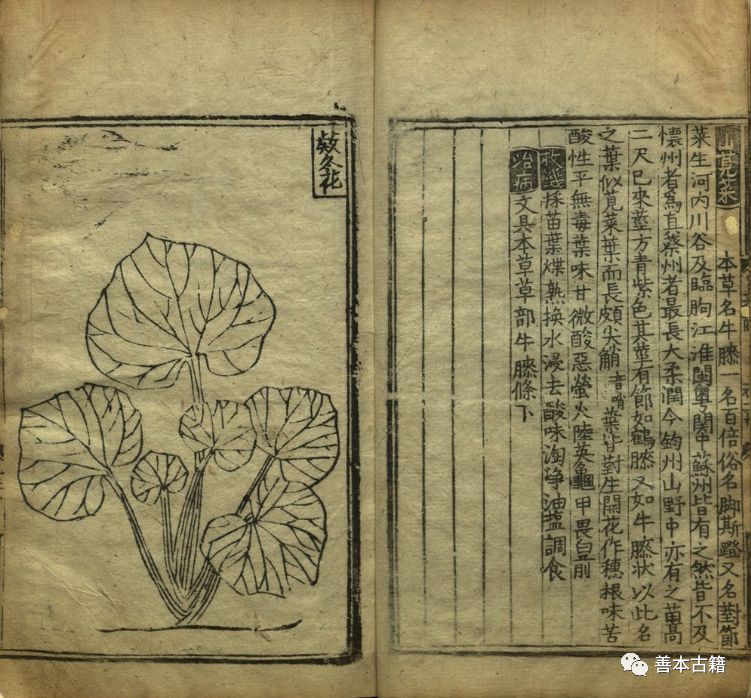 山莧菜
本草名牛膝一名百倍俗名脚斯蹬又名對節
菜生河内川谷及臨朐江淮閩粤關中蘇州皆有之然皆不及
懷州者爲真蔡州者最長大柔潤今鈞州山野中亦有之苗高
二尺已來莖方青紫色其莖有節如鶴膝又如牛膝狀以此名
之葉似莧菜葉而長頗尖艄音哨葉皆對生開花作穗根味苦
酸性平無毒葉味甘微酸惡螢火陸英龜甲畏白前
救飢採苗葉煠熟换水浸去酸味淘淨油鹽調食
治病文具本草草部牛膝條下
欵冬花
善本古籍